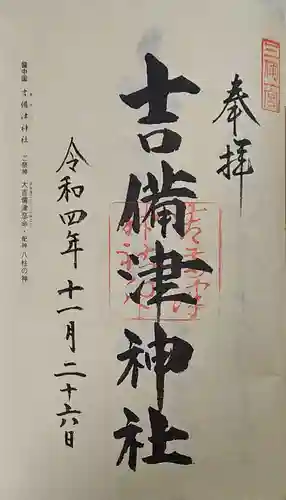 三備一宮
奉拝
吉備津神社
令和四年十一月二十六日
備中国 吉備津神社 ご祭神 大吉備津彦命・配神 八柱の神